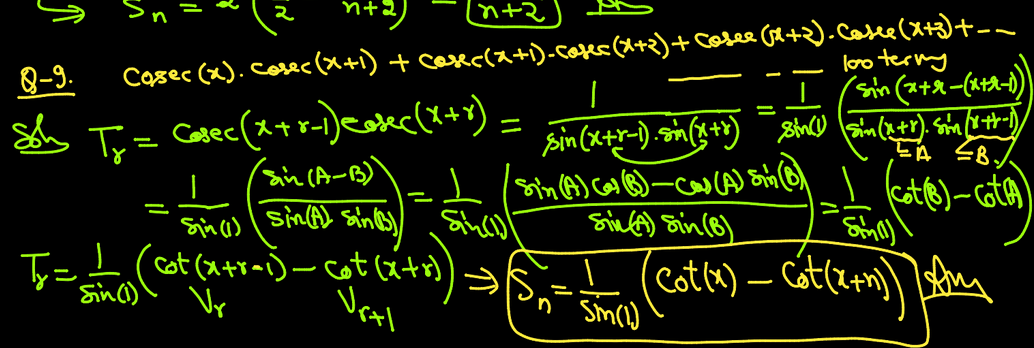 ↳ Sn = 2 ( /2 n+2 ) = n+2 Ans
Q-9. cosec(x).cosec(x+1) + cosec(x+1).cosec(x+2) + cosec(x+2).cosec(x+3) + ---
100 terms
Soln Tr = cosec(x+r-1) cosec(x+r) = 1/(sin(x+r-1).sin(x+r)) = 1/sin(1) (sin(x+r-(x+r-1))/(sin(x+r).sin(x+r-1)))
=A =B
= 1/sin(1) (sin(A-B)/(sin(A) sin(B))) = 1/sin(1) ((sin(A) cos(B) - cos(A) sin(B))/(sin(A) sin(B))) = 1/sin(1) (cot(B) - cot(A))
Tr = 1/sin(1) (cot(x+r-1) - cot(x+r)) ⇒ Sn = 1/sin(1) (cot(x) - cot(x+n)) Ans
Vr Vr+1